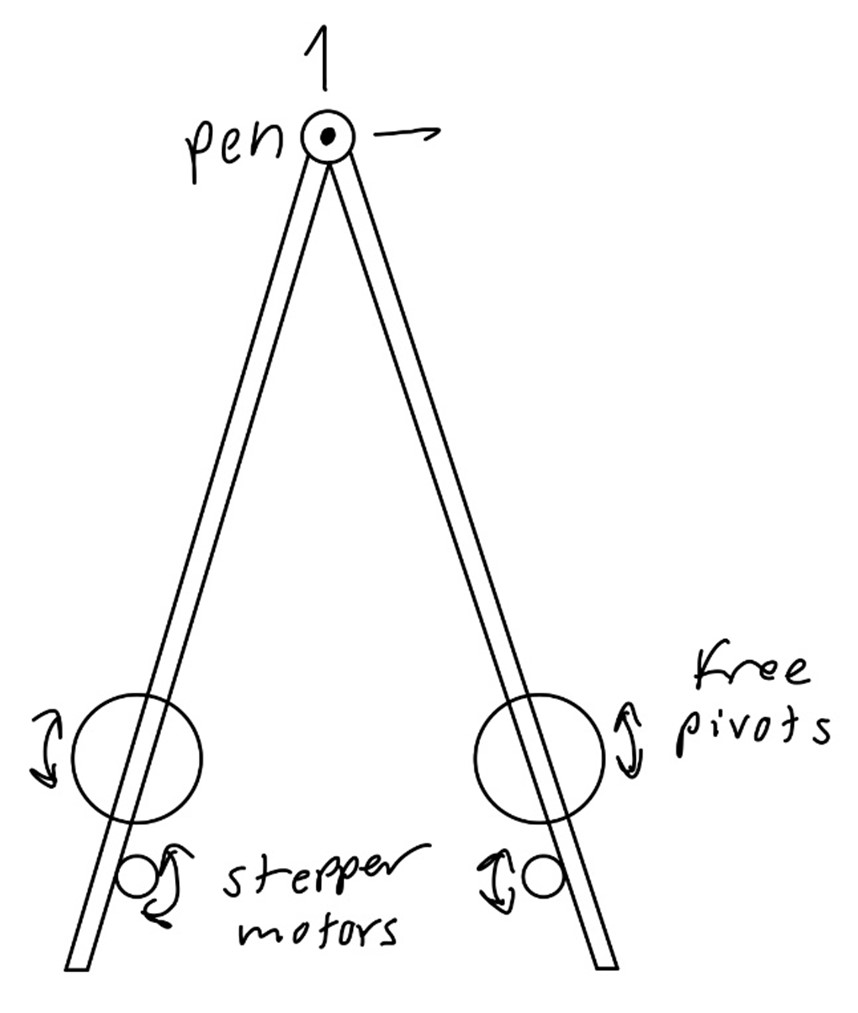 pen
free
pivots
stepper
motors